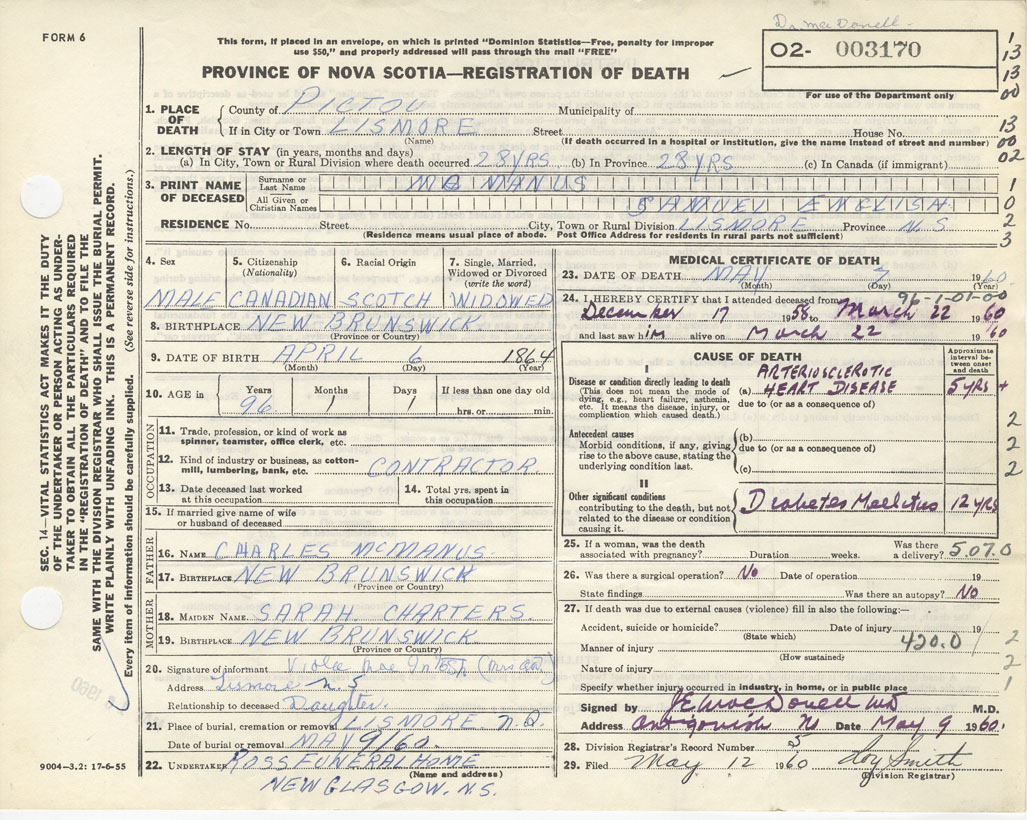 Dr. MacDonell
FORM 6
This form, if placed in an envelope, on which is printed "Dominion Statistics—Free, penalty for improper
use $50," and properly addressed will pass through the mail "FREE"
PROVINCE OF NOVA SCOTIA—REGISTRATION OF DEATH
02- 003170
For use of the Department only
1
13
13
00
1. PLACE OF DEATH
County of PICTOU Municipality of
If in City or Town LISMORE Street House No.
(Name) (If death occurred in a hospital or institution, give the name instead of street and number)
13
00
02
2. LENGTH OF STAY (in years, months and days)
(a) In City, Town or Rural Division where death occurred 28 YRS (b) In Province 28 YRS (c) In Canada (if immigrant)
3. PRINT NAME OF DECEASED
Surname or Last Name MC MANUS
All Given or Christian Names ENGLISH
1
0
2
3
RESIDENCE No. Street City, Town or Rural Division LISMORE Province N.S
(Residence means usual place of abode. Post Office Address for residents in rural parts not sufficient)
4. Sex
MALE
5. Citizenship
(Nationality)
CANADIAN
6. Racial Origin
SCOTCH
7. Single, Married,
Widowed or Divorced
(write the word)
WIDOWED
8. BIRTHPLACE NEW BRUNSWICK
(Province or Country)
9. DATE OF BIRTH APRIL 6 1864
(Month) (Day) (Year)
10. AGE in
Years 96
Months 1
Days 1
If less than one day old
hrs. or min.
OCCUPATION
11. Trade, profession, or kind of work as
spinner, teamster, office clerk, etc.
12. Kind of industry or business, as cotton-
mill, lumbering, bank, etc. CONTRACTOR
13. Date deceased last worked
at this occupation
14. Total yrs. spent in
this occupation
15. If married give name of wife
or husband of deceased
FATHER
16. NAME CHARLES MCMANUS
17. BIRTHPLACE NEW BRUNSWICK
(Province or Country)
MOTHER
18. MAIDEN NAME SARAH CHARTERS.
19. BIRTHPLACE NEW BRUNSWICK
(Province or Country)
20. Signature of informant Viola Mae
Address Lismore N.S
Relationship to deceased Daughter.
21. Place of burial, cremation or removal LISMORE
Date of burial or removal MAY 9/60.
22. UNDERTAKER ROSS FUNERAL HOME
(Name and address)
NEW GLASGOW, N.S.
9004—3.2: 17-6-55
MEDICAL CERTIFICATE OF DEATH
23. DATE OF DEATH MAY 7 1960
(Month) (Day) (Year)
96-1-01-00
24. I HEREBY CERTIFY that I attended deceased from
December 17 1958 to March 22 1960
and last saw him alive on March 22 '60
CAUSE OF DEATH
Approximate
interval be-
tween onset
and death
I
Disease or condition directly leading to death
(This does not mean the mode of
dying, e.g., heart failure, asthenia,
etc. It means the disease, injury, or
complication which caused death.)
ARTERIOSCLEROTIC
(a) HEART DISEASE 5 yrs +
due to (or as a consequence of)
Antecedent causes
Morbid conditions, if any, giving
rise to the above cause, stating the
underlying condition last.
(b)
due to (or as a consequence of)
(c)
2
2
2
II
Other significant conditions
contributing to the death, but not
related to the disease or condition
causing it.
Diabetes Mellitus 12 yrs
25. If a woman, was the death
associated with pregnancy? Duration weeks. Was there a delivery?
5.07.0
26. Was there a surgical operation? No Date of operation 19
State findings Was there an autopsy? No
27. If death was due to external causes (violence) fill in also the following:—
Accident, suicide or homicide? Date of injury 19
(State which)
420.0
Manner of injury
(How sustained)
Nature of injury
Specify whether injury occurred in industry, in home, or in public place
2
2
1
Signed by J E MacDonell MD M.D.
Address Antigonish NS Date May 9 1960.
28. Division Registrar's Record Number 5
29. Filed May 12 1960 Roy Smith
(Division Registrar)
SEC. 14—VITAL STATISTICS ACT MAKES IT THE DUTY
OF THE UNDERTAKER OR PERSON ACTING AS UNDER-
TAKER TO OBTAIN ALL THE PARTICULARS REQUIRED
IN THE "REGISTRATION OF DEATH" AND TO FILE THE
SAME WITH THE DIVISION REGISTRAR WHO SHALL ISSUE THE BURIAL PERMIT.
WRITE PLAINLY WITH UNFADING INK. THIS IS A PERMANENT RECORD.
Every item of information should be carefully supplied. (See reverse side for instructions.)